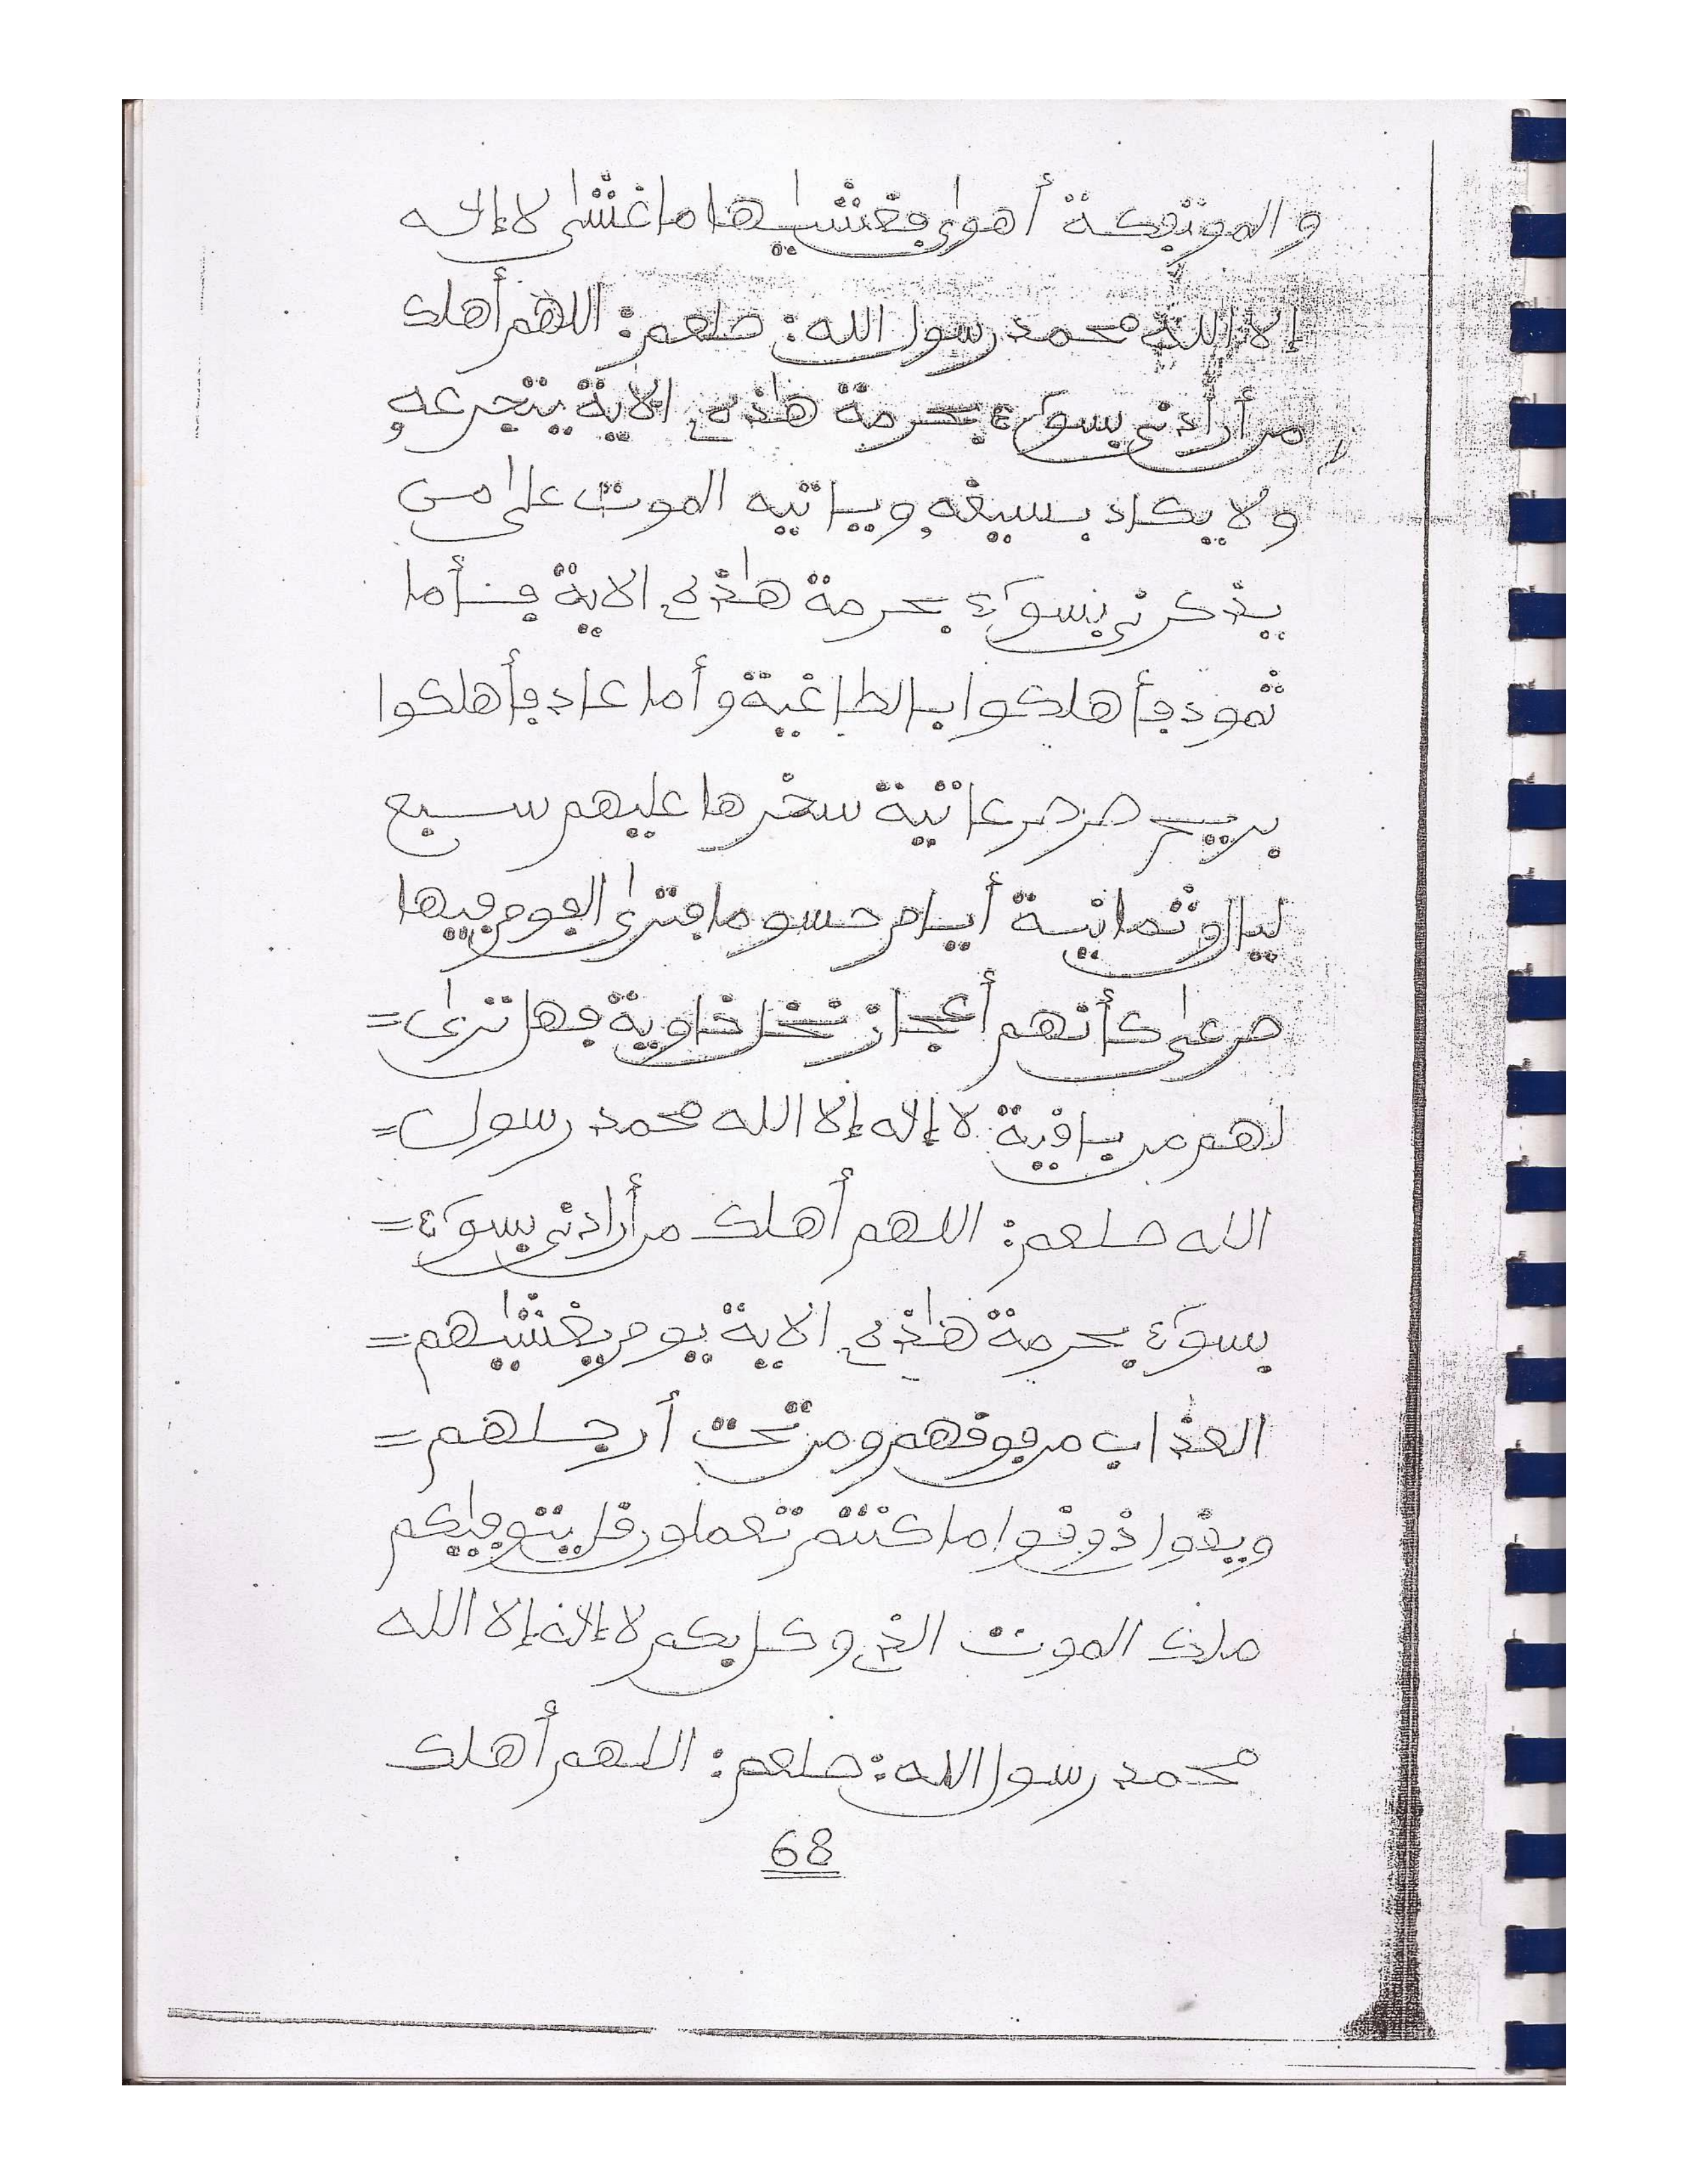 والموتڢكة أهوى ڢغشيها ما غشى لا إله
إلا الله محمد رسول الله: صلعم: اللهم أهلك
من أرادني بسوء بحرمة هذه الاية يتجرعه
ولا يكاد يسيغه وياتيه الموت على من
يذكرني بسوء بحرمة هذه الاية ڢأما
ثمود ڢأهلكوا بالطاغية وأما عاد ڢأهلكوا
بريح صرصر عاتية سخرها عليهم سبع
ليال وثمانية أيام حسوما ڢترى الڧوم ڢيها
صرعى كأنهم أعجاز نخل خاوية ڢهل ترى=
لهم من باڧية لا إله إلا الله محمد رسول=
الله صلعم: اللهم أهلك من أرادني بسوء=
بسوء بحرمة هذه الاية يوم يغشيهم=
العذاب من ڢوڧهم ومن تحت أرجلهم=
ويڧول ذوڧوا ما كنتم تعملون ڧل يتوڢيكم
ملك الموت الذي وكل بكم لا إله إلا الله
محمد رسول الله: صلعم: اللهم أهلك
68